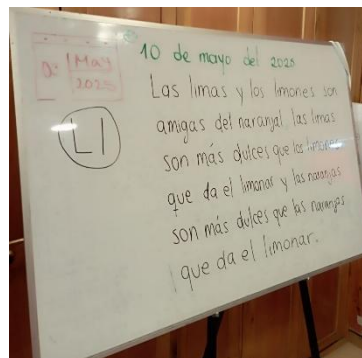 10 de mayo del 2025
May
2025
L1
Las limas y los limones son
amigas del naranjal. las limas
son más dulces que los limones
que da el limonar y las naranjas
son más dulces que las naranjas
que da el limonar.